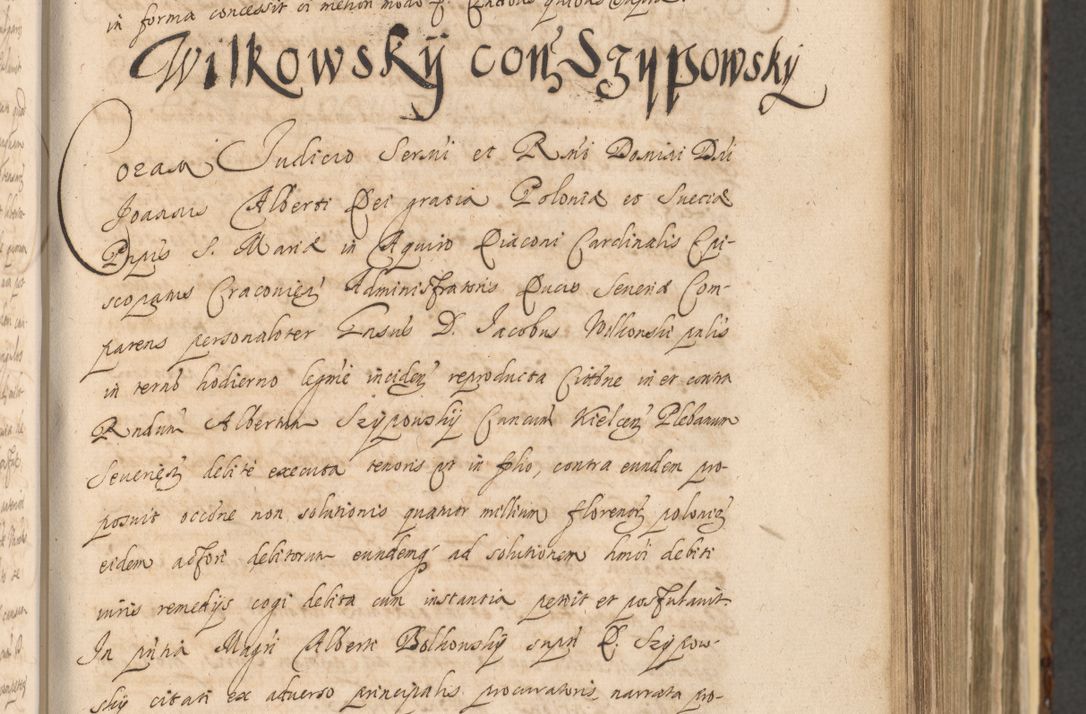 in forma concessit ei meliori modo
Wilkowskÿ con Szÿpowskÿ
Coram Judicio Sermi et Rmi Domini Dni
Joannis Alberti Dei gratia Poloniæ et Sueciæ
Prpis S. Mariæ in Aquiro Diaconi Cardinalis Epi-
scopatus Cracovien Administratoris Ducis Severiæ Com-
parens personaliter Gnsus D. Jacobus Wilkonski palis
in termo hodierno legme inciden reproducta Cittone in et contra
Rndum Albertum Szÿpouskÿ Cancum Kielcen Plebanum
Severien debite executa tenoris ut in folio, contra eundem pro-
posuit occone non solutionis quatuor millium florenor polonic
eidem actori debitorum eundemq ad solutionem hmoi debiti
iuris remedijs cogi debita cum instantia petiit et postulavit
In pntia Magri Alberti Bolkonskÿ supri D. Szÿpow-
skÿ citati ex adverso principalis procuratoris narrata pro-